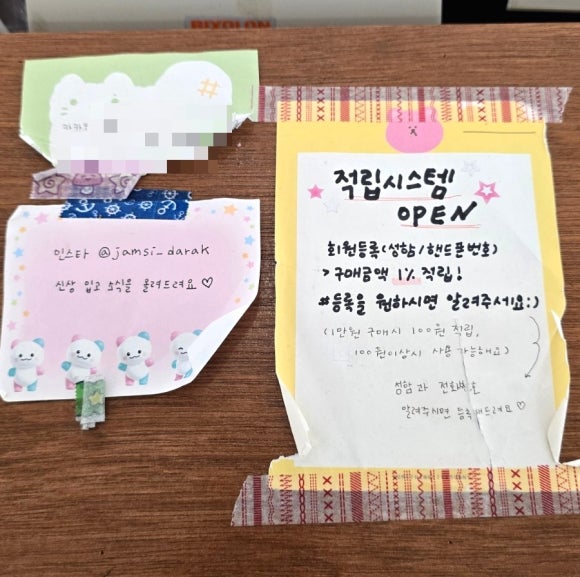 BIXOLON
인스타 @jamsi_darak
신상 입고 소식을 올려드려요♡
적립시스템
OPEN
회원등록(성함/핸드폰번호)
> 구매금액 1% 적립!
#등록을 원하시면 알려주세요:)
(1만원 구매시 100원 적립,
100원이상시 사용 가능해요)
성함과 전화번호
알려주시면 등록해드려요♡